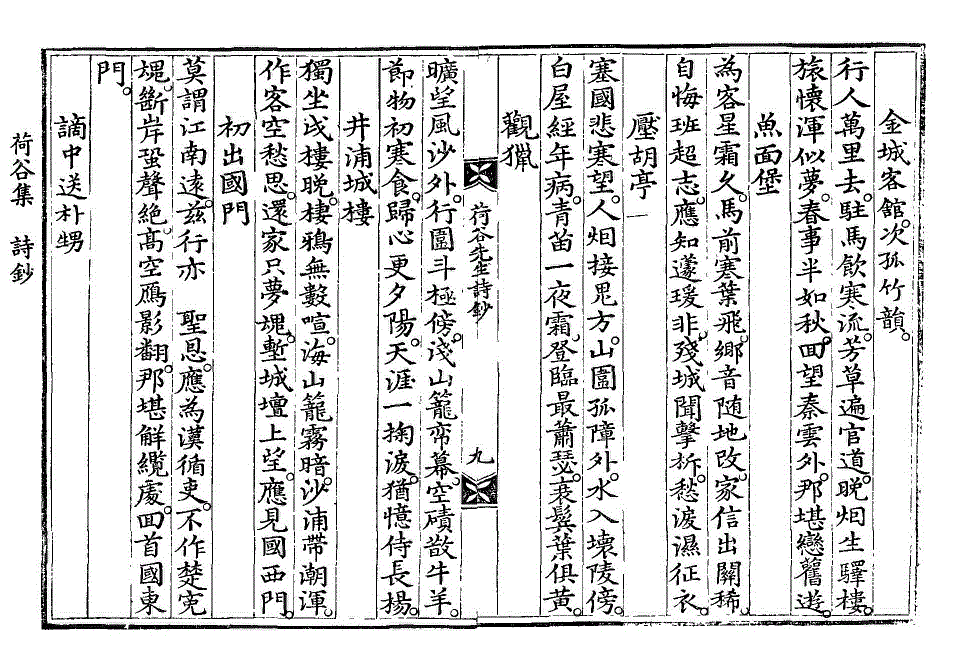 金城客館。次孤竹韻。
行人萬里去。駐馬飮寒流。芳草遍官道。晩烟生驛樓。
旅懷渾似夢。春事半如秋。回望秦雲外。那堪戀舊遊。
魚面堡
為客星霜久。馬前寒葉飛。鄕音隨地改。家信出關稀。
自悔班超志。應知蘧瑗非。殘城聞擊柝。愁淚濕征衣。
壓胡亭
塞國悲寒望。人烟接鬼方。山圍孤障外。水入壞陵傍。
白屋經年病。靑苗一夜霜。登臨最蕭瑟。衰鬂葉俱黃。
觀獵
荷谷先生詩鈔
九
曠望風沙外。行圍斗極傍。淺山籠帟幕。空磧散牛羊。
節物初寒食。歸心更夕陽。天涯一掬淚。猶憶侍長揚。
井浦城樓
獨坐戍樓晩。棲鴉無數喧。海山籠霧暗。沙浦帶潮渾。
作客空愁思。還家只夢魂。塹城壇上望。應見國西門。
初出國門
莫謂江南遠。玆行亦 聖恩。應為漢循吏。不作楚寃
魂。斷岸蛩聲絶。高空鴈影翻。那堪解纜處。回首國東
門。
謫中送朴甥
荷谷集 詩鈔